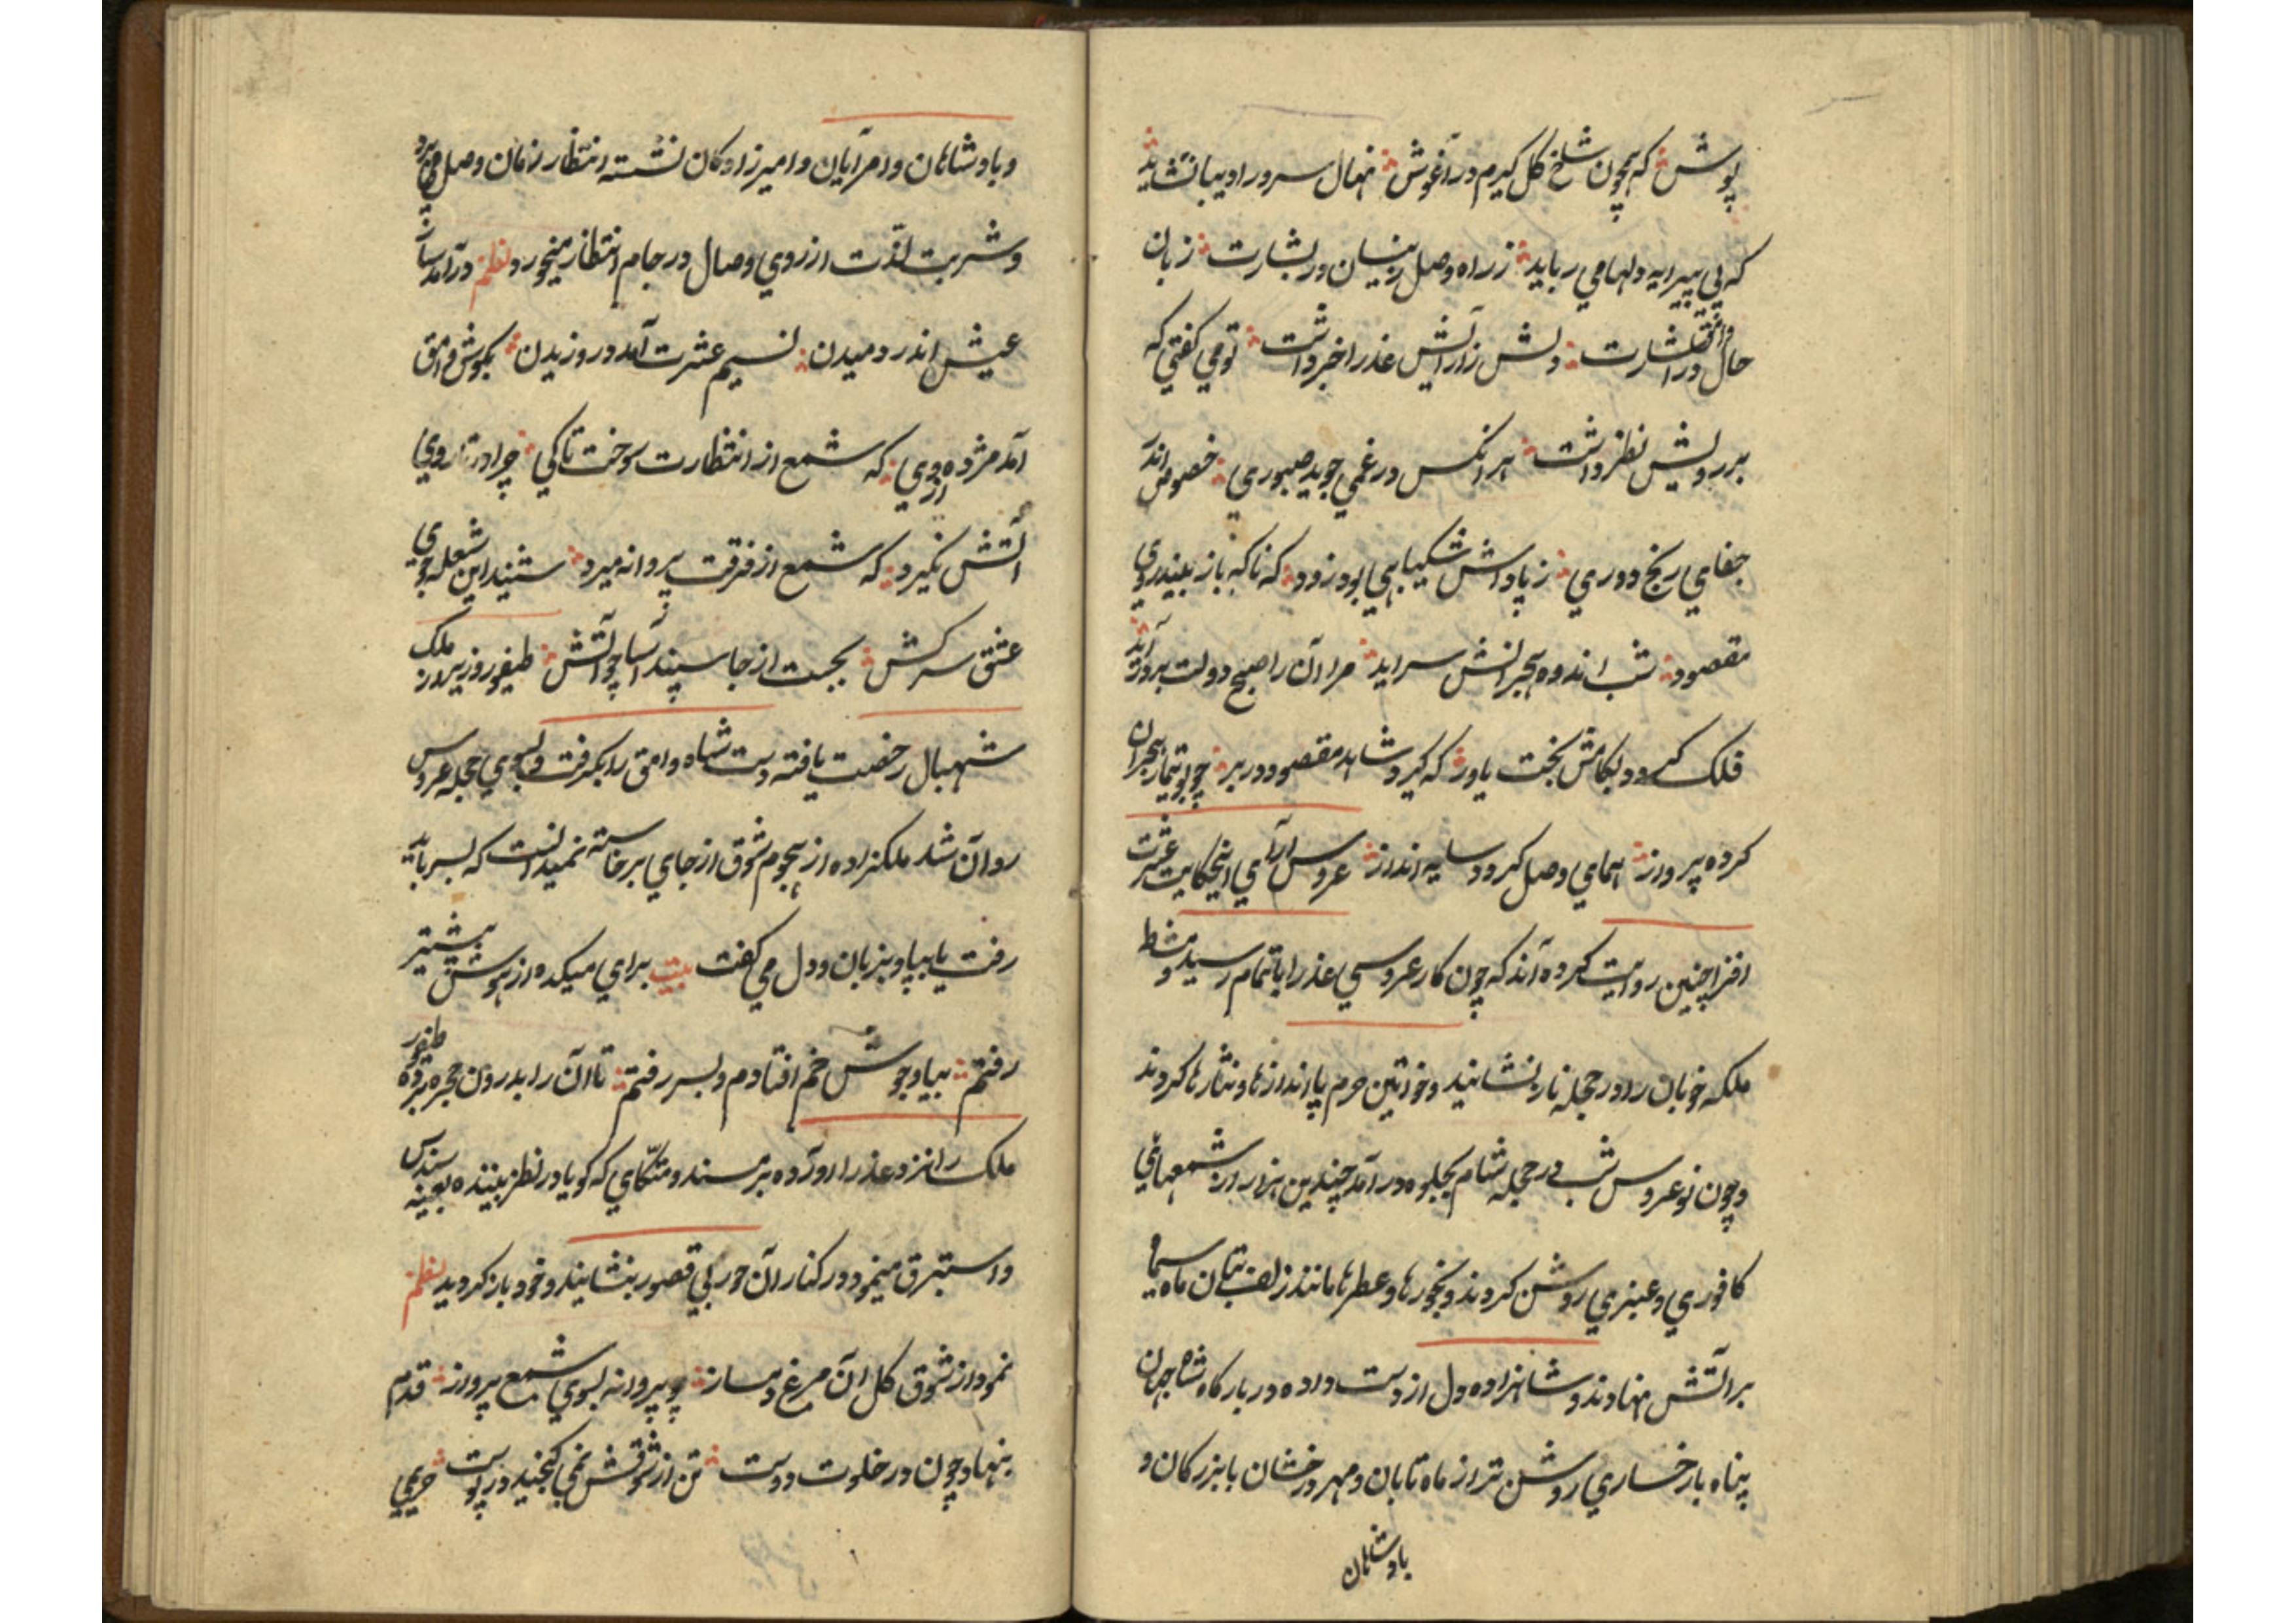 پوش که همچون شاخ گل گیرم در آغوش نهال سرو را دیبا نشاید
که بی پیرایه دلها می رباید ز راه وصل بینسان در بشارت زبان
حال وامق در اشارت دلش ز آرایش عذرا خبر داشت تو می گفتی که
بر رویش نظر داشت هر انکس در غمی جوید صبوری خصوص اندر
جفای رنج دوری ز پاداش شکیبایی بود زود که ناگه باز بیند روی
مقصود شب اندوه هجرانش سراید مر آن را صبح دولت بر در آید
فلک گردد بکامش بخت یاور که گیرد شاهد مقصود در بر چو بوتیمار هجران
کرده پرواز همای وصل گردد سایه انداز عروس آرای اینحکایت عشرت
افزا چنین روایت کرده اند که چون کار عروسی عذرا باتمام رسید و مشاطه
ملکه خوبان را در حجله ناز نشانید و خواتین حرم پا اندازها و نثارها کردند
و چون نوعروس شب در حجله شام بجلوه در آمد چندین هزار از شمعهای
کافوری و عنبری روشن کردند و بخورها و عطرها مانند زلف بتان ماه سیما
بر آتش نهادند و شاهزاده دل از دست داده در بارگاه شاه جهان
پناه با رخساری روشن تر از ماه تابان و مهر درخشان با بزرگان و
بادشاهان
و بادشاهان و امرایان و امیرزادگان نشسته انتظار زمان وصل می برد
و شربت لذت ارزوی وصال در جام انتظار میخورد نظم در آمد ساز
عیش اندر دمیدن نسیم عشرت آمد در وزیدن بگوش وامق
آمد مژده از وی که شمع از انتظارت سوخت تا کی چرا در تار وی
آتش نگیرد که شمع از فرقت پروانه میرد شنید این شعله جوی
عشق سرکش بجست از جا سپند آسا چو آتش طیفور وزیر ملک
شهبال رخصت یافته دست شاه وامق را بگرفت و بسوی حجله عروس
روان شد ملکزاده از هجوم شوق از جای برخاسته نمیدانست که بسر باید
رفت یا بپا و بزبان و دل می گفت بیت برای میکده از هوش پیشتر
رفتم بیاد جوش خم افتادم و بسر رفتم تا آن را بدرون حجره برده طیفور
ملک را نزد عذرا آورده بر مسند و متکای که گویا در نظر بیننده بعینه سندس
و استبرق مینمود در کنار آن حور بی قصور بنشانید و خود باز گردید نظم
نمود از شوق گل آن مرغ دمساز چو پروانه بسوی شمع پرواز قدم
بنهاد چون در خلوت دوست تن از شوقش نمی گنجید در پوست حریمی